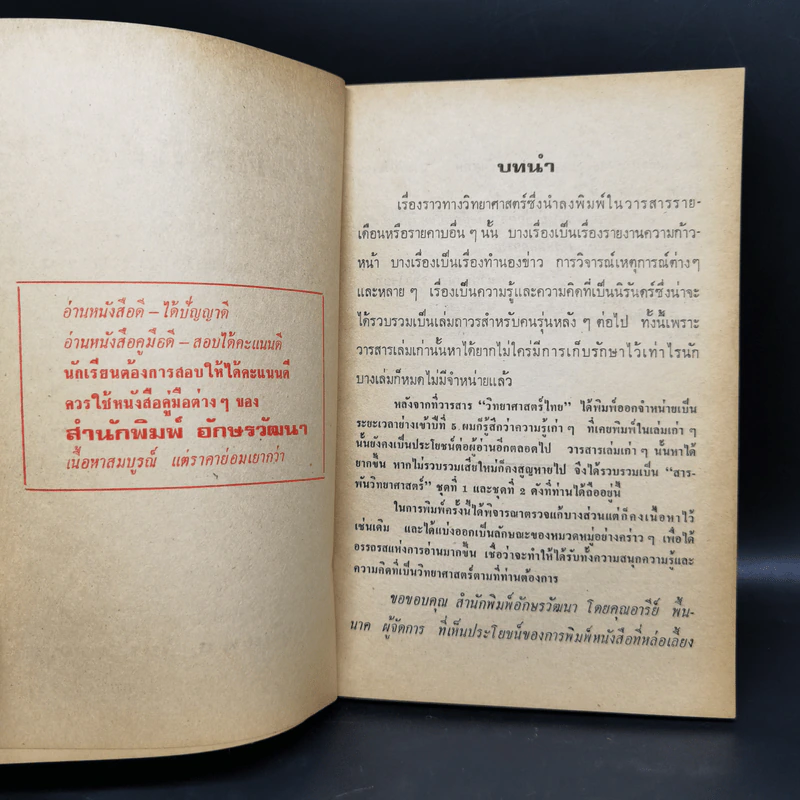 อ่านหนังสือดี – ได้ปัญญาดี
อ่านหนังสือคู่มือดี – สอบได้คะแนนดี
นักเรียนต้องการสอบให้ได้คะแนนดี
ควรใช้หนังสือคู่มือต่างๆ ของ
สำนักพิมพ์ อักษรวัฒนา
เนื้อหาสมบูรณ์ แต่ราคาย่อมเยากว่า
บทนำ
เรื่องราวทางวิทยาศาสตร์ซึ่งนำลงพิมพ์ในวารสารราย-
เดือนหรือรายคาบอื่น ๆ นั้น บางเรื่องเป็นเรื่องรายงานความก้าว-
หน้า บางเรื่องเป็นเรื่องทำนองข่าว การวิจารณ์เหตุการณ์ต่างๆ
และหลาย ๆ เรื่องเป็นความรู้และความคิดที่เป็นนิรันดร์ซึ่งน่าจะ
ได้รวบรวมเป็นเล่มถาวรสำหรับคนรุ่นหลัง ๆ ต่อไป ทั้งนี้เพราะ
วารสารเล่มเก่านั้นหาได้ยากไม่ใคร่มีการเก็บรักษาไว้เท่าไรนัก
บางเล่มก็หมดไม่มีจำหน่ายแล้ว
หลังจากที่วารสาร “วิทยาศาสตร์ไทย” ได้พิมพ์ออกจำหน่ายเป็น
ระยะเวลาย่างเข้าปีที่ 5 ผมก็รู้สึกว่าความรู้เก่า ๆ ที่เคยพิมพ์ในเล่มเก่า ๆ
นั้นยังคงเป็นประโยชน์ต่อผู้อ่านอีกตลอดไป วารสารเล่มเก่า ๆ นั้นหาได้
ยากขึ้น หากไม่รวบรวมเสียใหม่ก็คงสูญหายไป จึงได้รวบรวมเป็น “สาร-
พันวิทยาศาสตร์” ชุดที่ 1 และชุดที่ 2 ดังที่ท่านได้ถืออยู่นี้
ในการพิมพ์ครั้งนี้ได้พิจารณาตรวจแก้บางส่วนแต่ก็คงเนื้อหาไว้
เช่นเดิม และได้แบ่งออกเป็นลักษณะของหมวดหมู่อย่างคร่าว ๆ เพื่อได้
อรรถรสแห่งการอ่านมากขึ้น เชื่อว่าจะทำให้ได้รับทั้งความสนุกความรู้และ
ความคิดที่เป็นวิทยาศาสตร์ตามที่ท่านต้องการ
ขอขอบคุณ สำนักพิมพ์อักษรวัฒนา โดยคุณอารีย์ พื้น-
นาค ผู้จัดการ ที่เห็นประโยชน์ของการพิมพ์หนังสือที่หล่อเลี้ยง